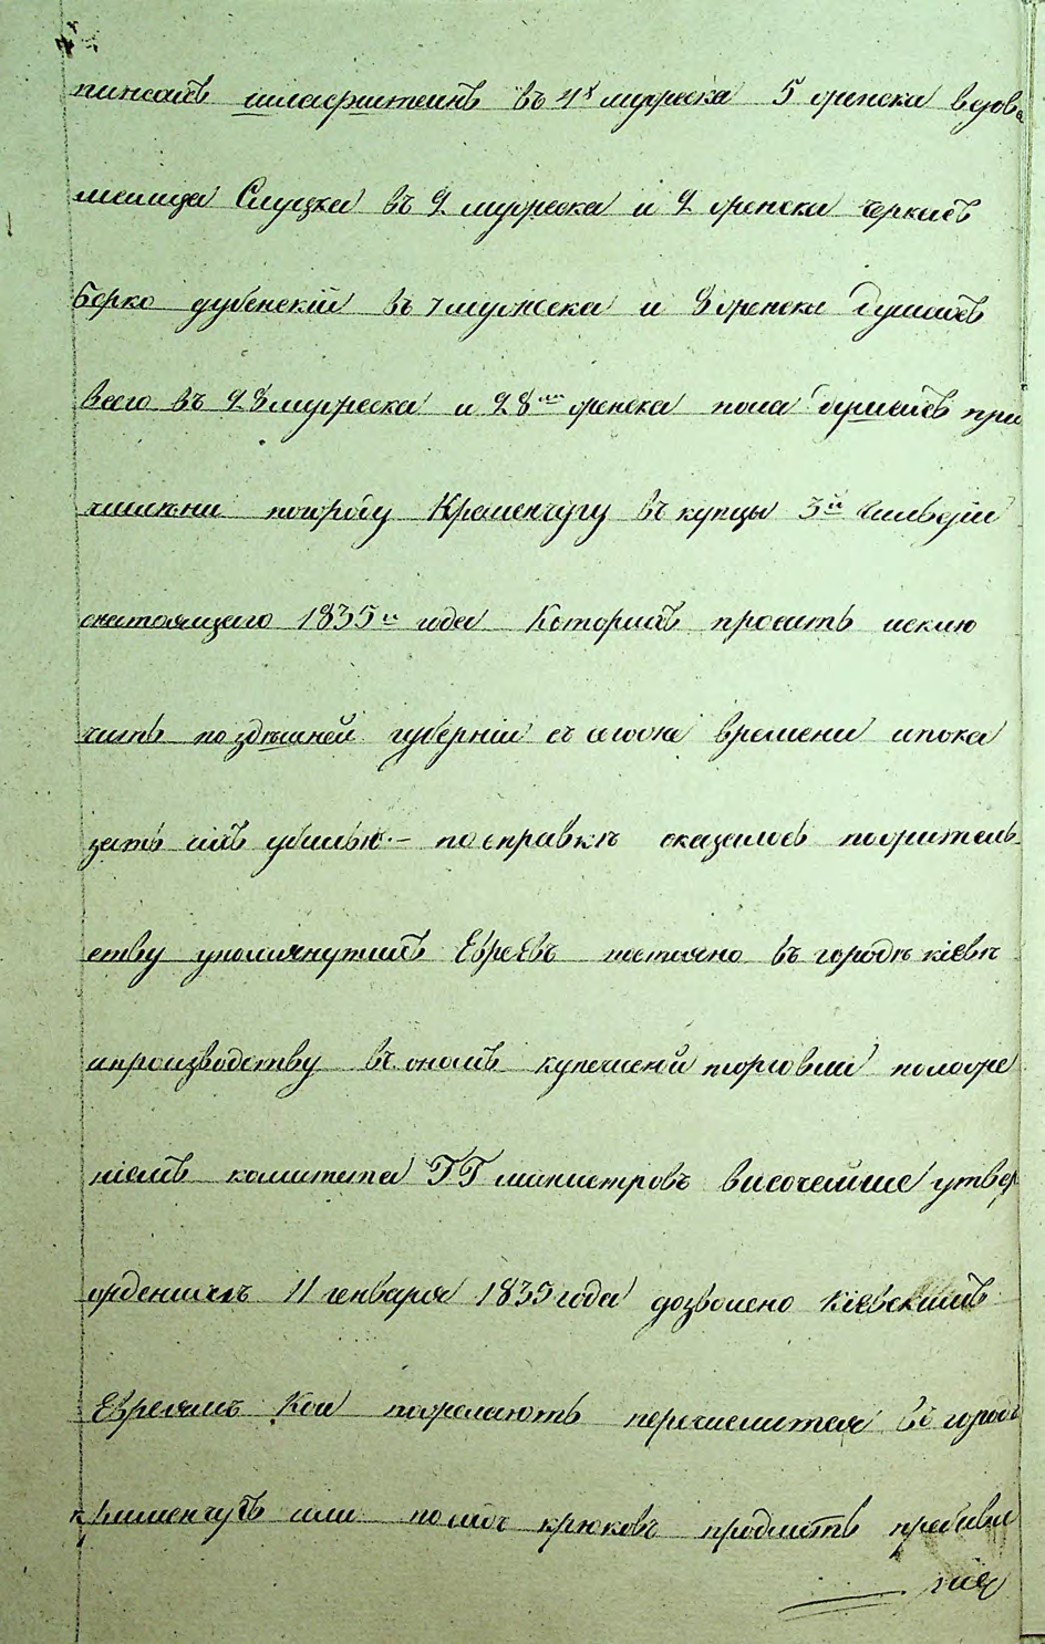 пинхасъ шлаефштеинъ въ 4х мужеска 5 женска вдова
малица Слуцка въ 2 мужеска и 2 женска Беркасъ
Борко дубенскій въ 7 мужеска и 8 женска душахъ
всего въ 28 мужеска и 28ми женска пола душахъ при
числены погороду Кременчугу въ купцы 3й гильдіи
снастоящего 1835го года Которихъ проситъ исклю
чить по здешней губерніи съ сегоже времени ипока
зать ихъ убилью. – по справкѣ оказалось пожитель
ству упомянутихъ Евреевъ постояно въ городѣ кіевѣ
ипроизводству въ ономъ купеческой торговли положе
ніемъ комитета ГГ министровъ височейше утвер
жденнимъ 11 генваря 1835 года дозволено Кіевскимъ
Евреямъ Кои пожелаютъ перечислится въ городъ
Кременчугъ или посадъ крюковъ продлить пребива
ніе